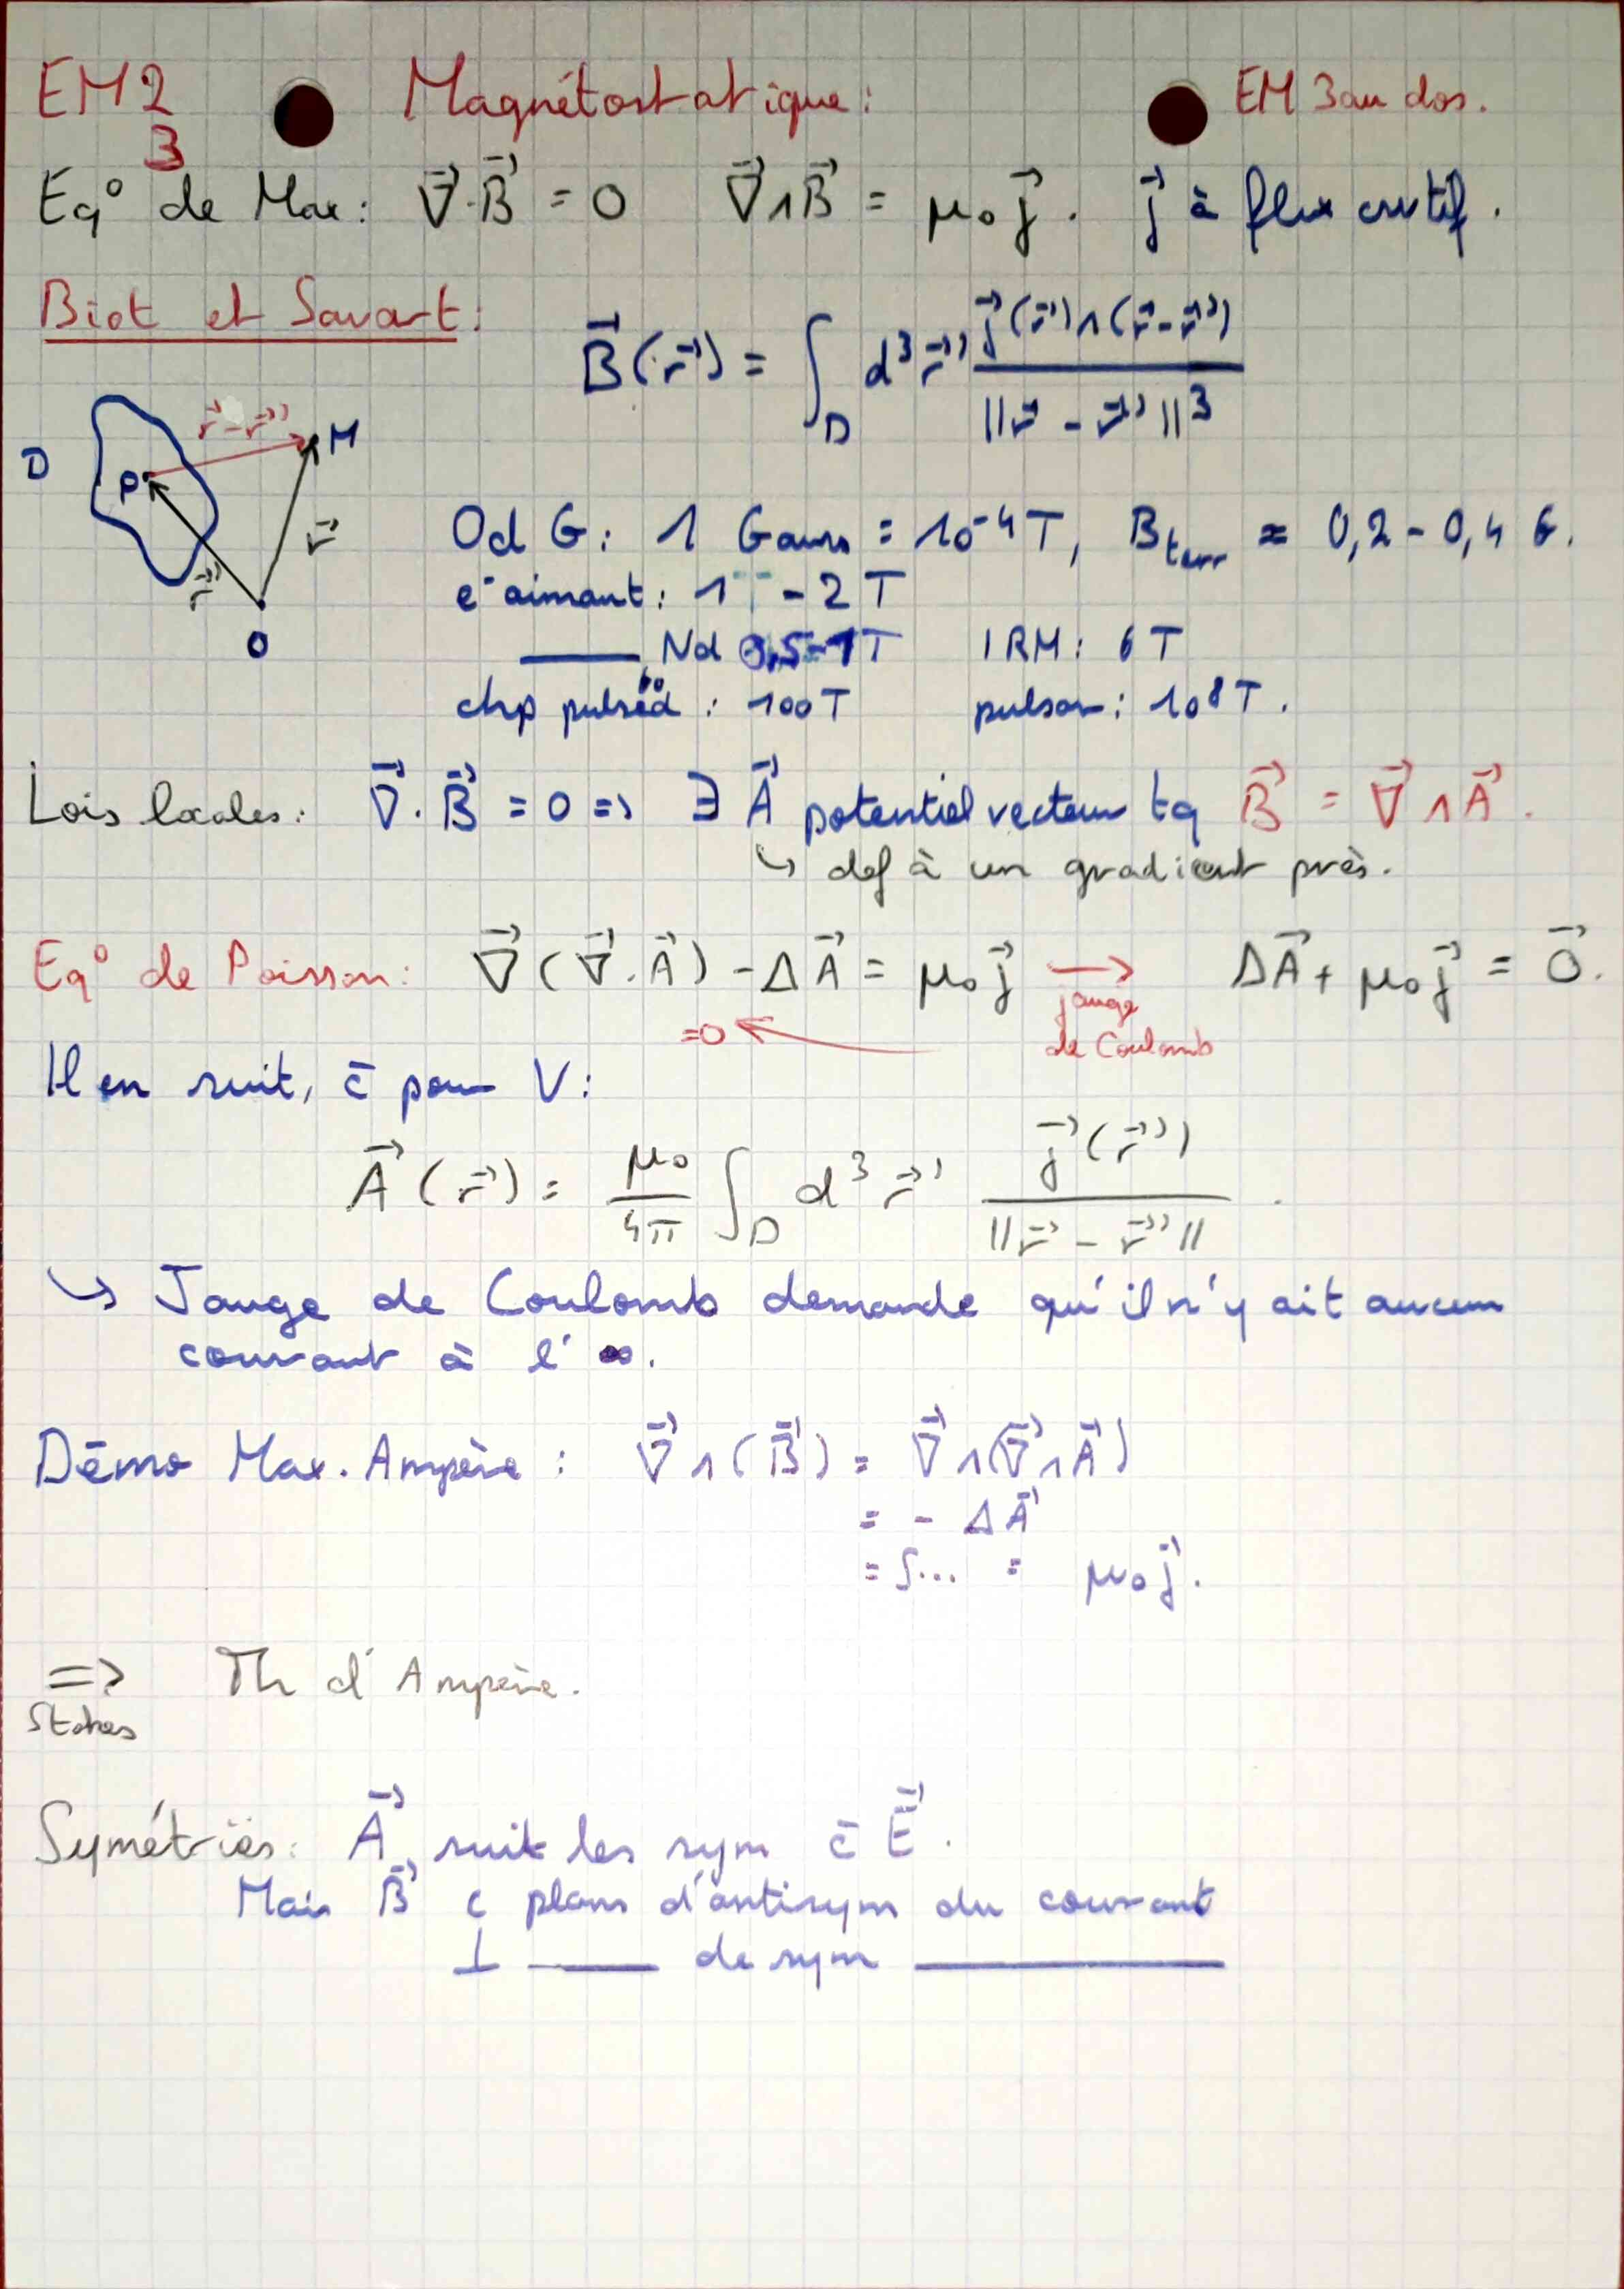 EM2 Magnétostatique: EM 3 au dos.
3
Eq° de Max: ∇⃗·B⃗ = 0 ∇⃗∧B⃗ = μ₀j⃗. j⃗ à flux csvtif.
Biot et Savart:
B⃗(r⃗) = ∫_D d³r⃗' j⃗(r⃗')∧(r⃗-r⃗') / ||r⃗-r⃗'||³
D P r⃗-r⃗' M r⃗ r⃗' O
Od G: 1 Gauss = 10⁻⁴T, B_terr ≈ 0,2-0,4 G.
e⁻aimant: 1 - 2 T
——— Nd 0,5-1T IRM: 6 T
chp pulséd : 100T pulsar: 10⁸T.
Lois locales: ∇⃗·B⃗ = 0 => ∃ A⃗ potentiel vecteur tq B⃗ = ∇⃗∧A⃗.
↳ def à un gradient près.
Eq° de Poisson: ∇⃗(∇⃗·A⃗) - ΔA⃗ = μ₀j⃗ → ΔA⃗ + μ₀j⃗ = 0⃗.
=0 ← jauge
de Coulomb
Il en suit, c̄ pour V:
A⃗(r⃗) = μ₀/4π ∫_D d³r⃗' j⃗(r⃗') / ||r⃗-r⃗'|| .
↳ Jauge de Coulomb demande qu'il n'y ait aucun
courant à l'∞.
Démo Max. Ampère : ∇⃗∧(B⃗) = ∇⃗∧(∇⃗∧A⃗)
= - ΔA⃗
= ∫... = μ₀j⃗.
=> Th d'Ampère.
Stokes
Symétries: A⃗ suit les sym c̄ E⃗.
Mais B⃗ ⊂ plans d'antisym du courant
⊥ ——— de sym ———